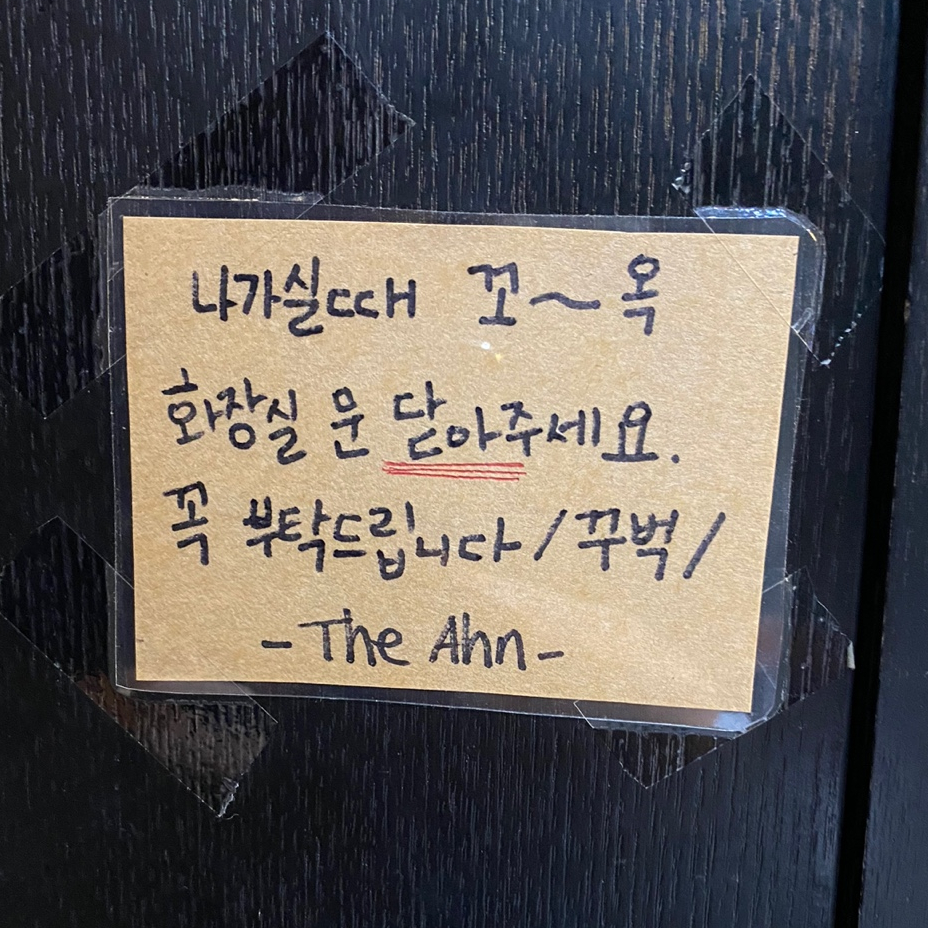 나가실때 꼬~옥
화장실 문 닫아주세요.
꼭 부탁드립니다/꾸벅/
-The Ahn-